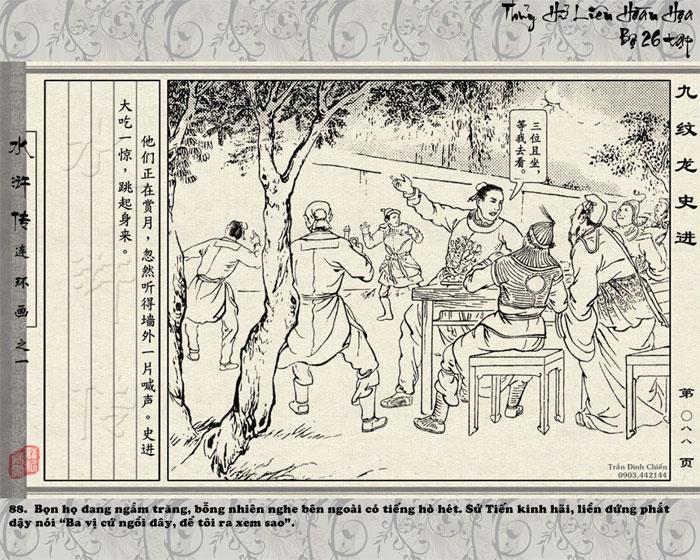 Thủy Hử Liên Hoàn Họa
Bộ 26 tập
九纹龙史进
三位且坐，
等我去看。
他们正在赏月，忽然听得墙外一片喊声。史进
大吃一惊，跳起身来。
水浒传连环画之一
水浒传
第〇八八页
Trần Đình Chiến
0903.442144
88. Bọn họ đang ngắm trăng, bỗng nhiên nghe bên ngoài có tiếng hò hét. Sử Tiến kinh hãi, liền đứng phắt
dậy nói “Ba vị cứ ngồi đây, để tôi ra xem sao”.